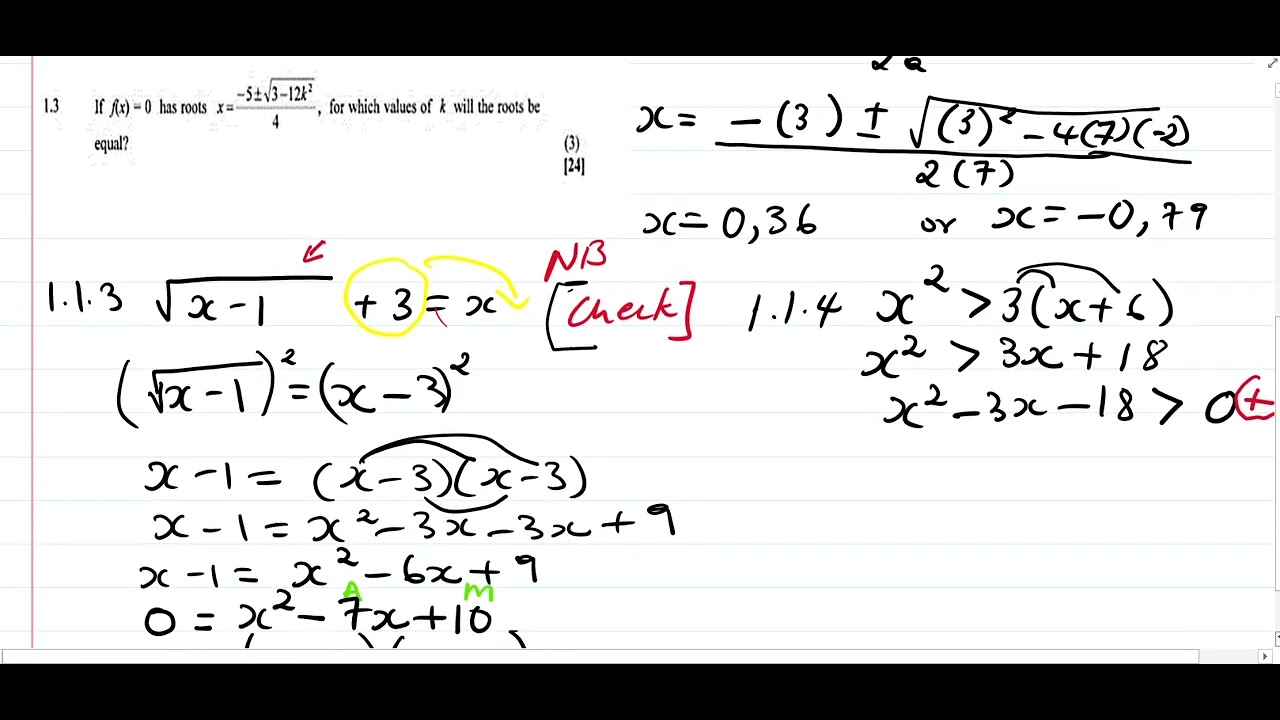 1.3 If f(x) = 0 has roots x = (-5 ± √(3 - 12k²))/4, for which values of k will the roots be
equal? (3)
[24]
1.1.3 √(x - 1) + 3 = x [Check] NB
(√(x - 1))² = (x - 3)²
x - 1 = (x - 3)(x - 3)
x - 1 = x² - 3x - 3x + 9
x - 1 = x² - 6x + 9
A M
0 = x² - 7x + 10
2a
x = (-(3) ± √((3)² - 4(7)(-2)))/2(7)
x = 0,36 or x = -0,79
1.1.4 x² > 3(x + 6)
x² > 3x + 18
x² - 3x - 18 > 0 +